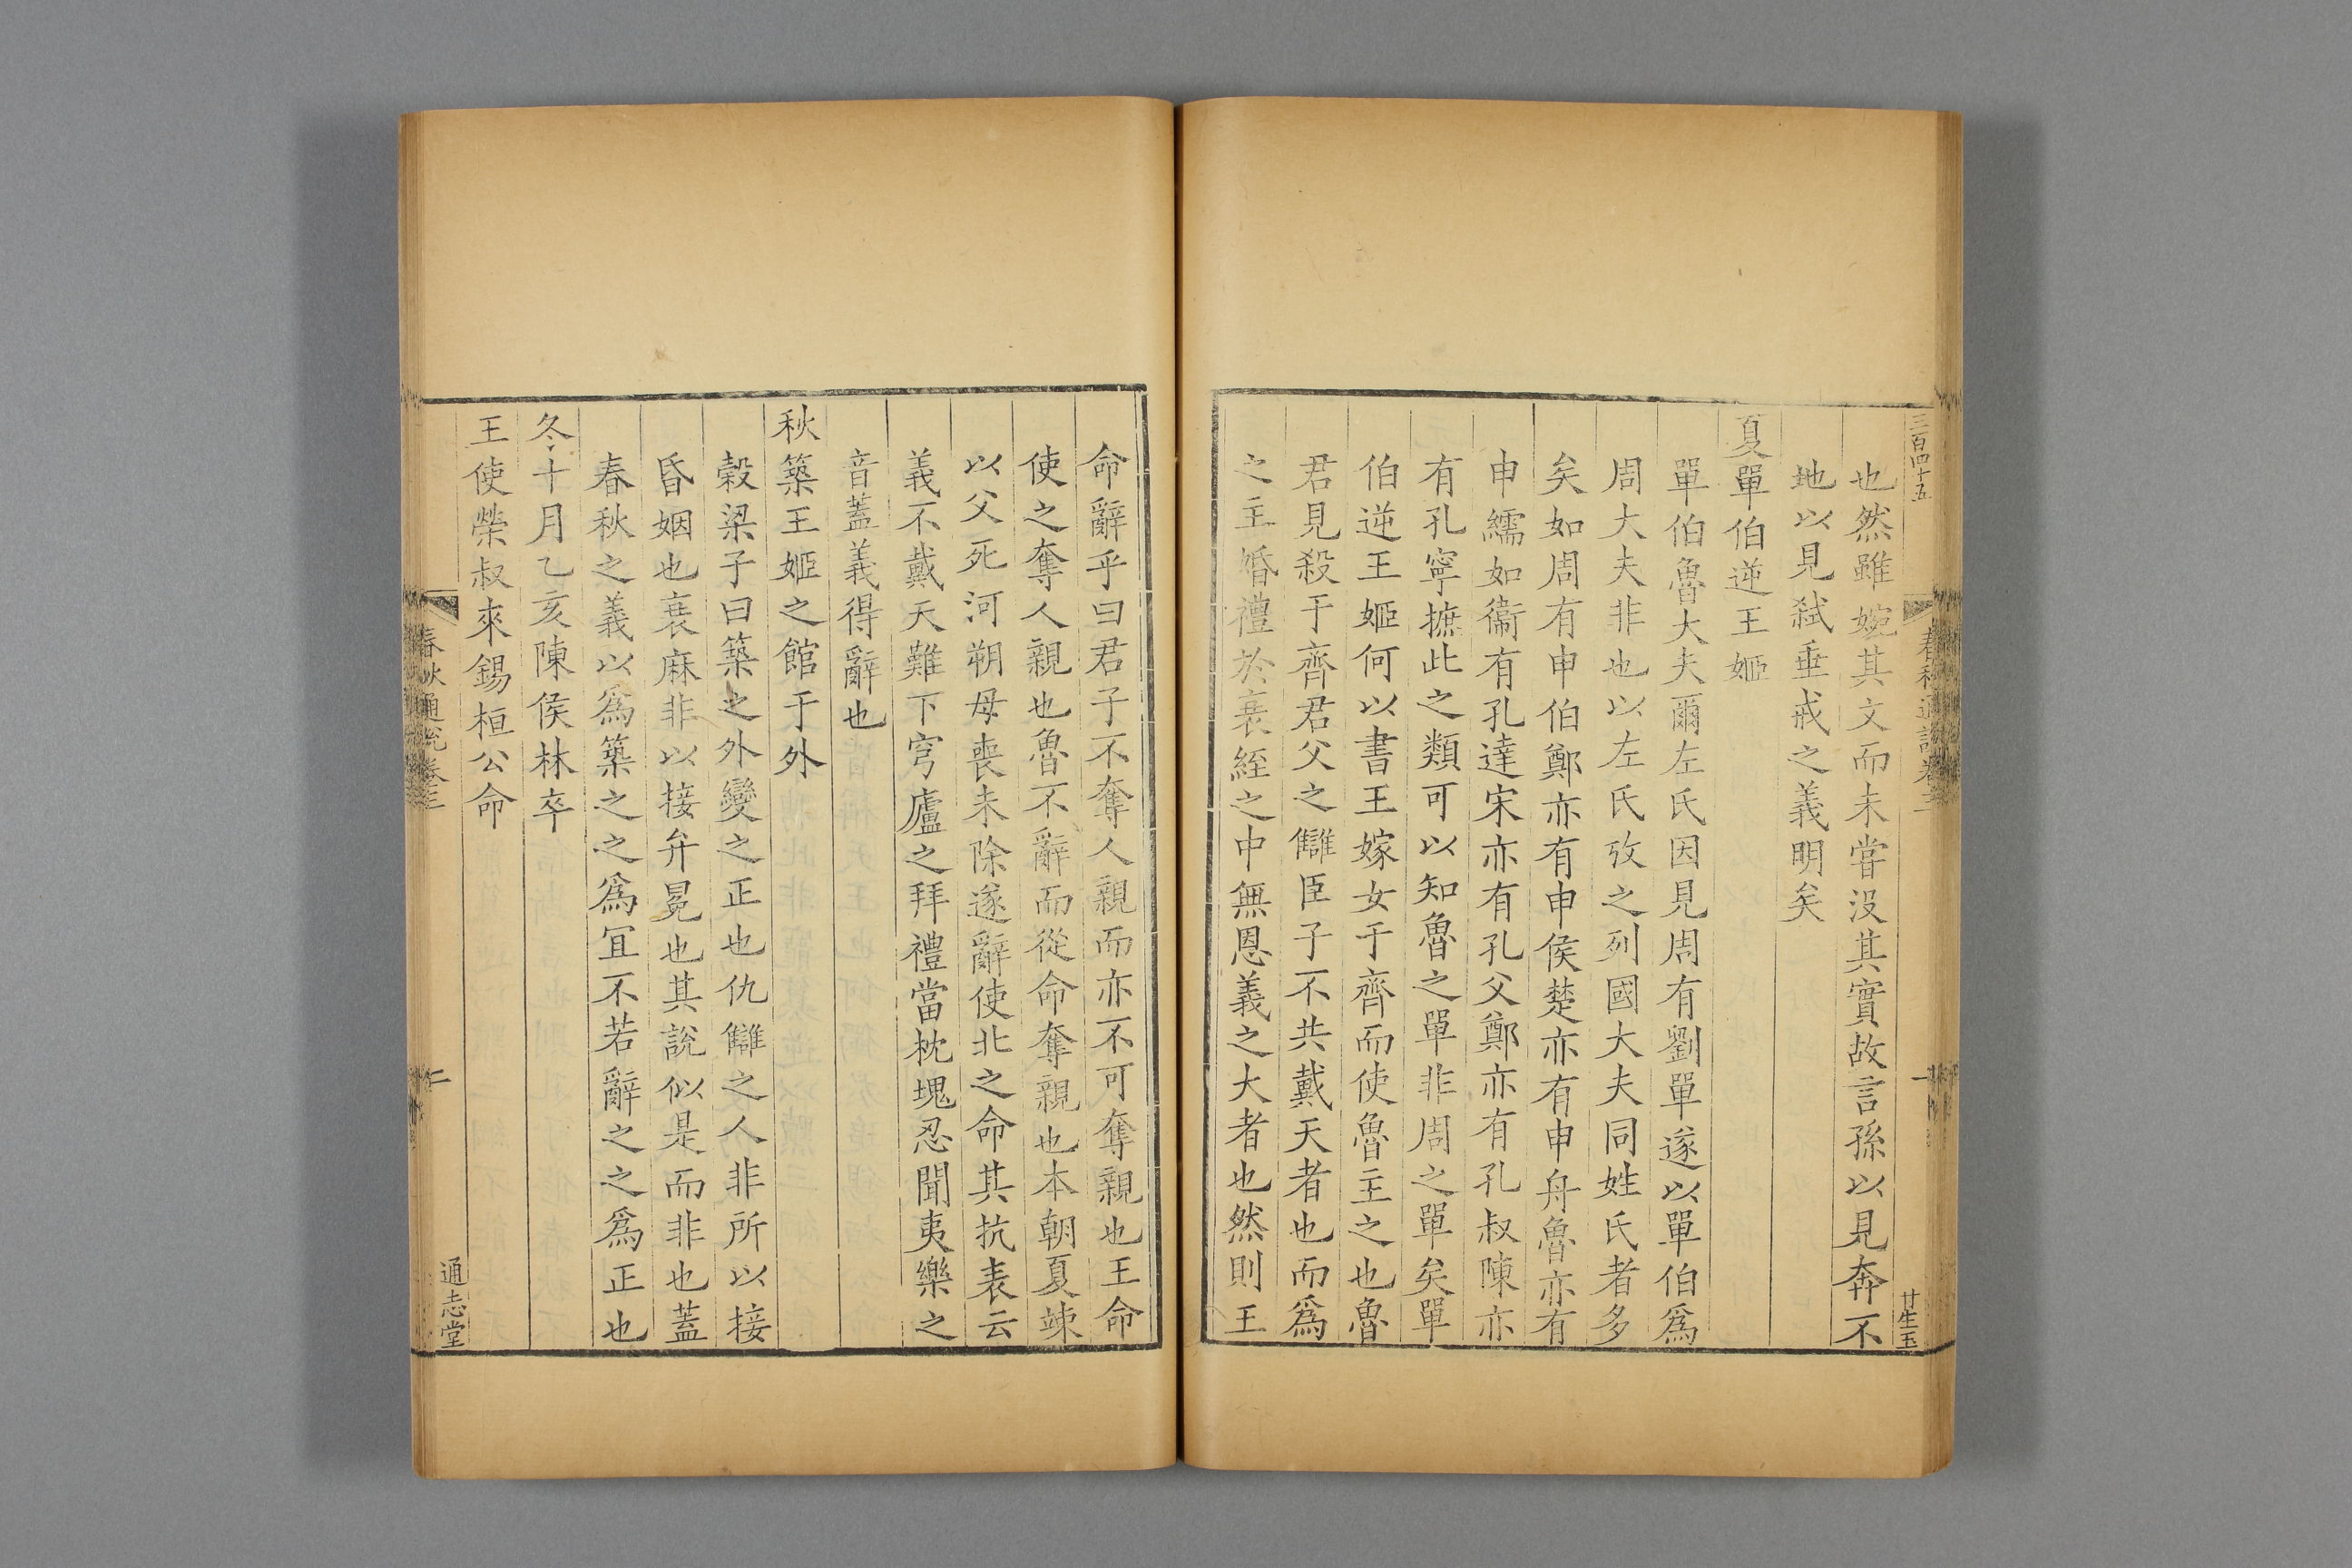 三百四十五
也然雖婉其文而未甞没其實故言孫以見奔不
地以見弑垂戒之義明矣
夏單伯逆王姬
單伯魯大夫爾左氏因見周有劉單遂以單伯爲
周大夫非也以左氏攷之列國大夫同姓氏者多
矣如周有申伯鄭亦有申侯楚亦有申舟魯亦有
申繻如衞有孔達宋亦有孔父鄭亦有孔叔陳亦
有孔寧摭此之類可以知魯之單非周之單矣單
伯逆王姬何以書王嫁女于齊而使魯主之也魯
君見殺于齊君父之讎臣子不共戴天者也而爲
之主婚禮於衰絰之中無恩義之大者也然則王
命辭乎曰君子不奪人親而亦不可奪親也王命
使之奪人親也魯不辭而從命奪親也本朝夏竦
以父死河朔母喪未除遂辭使北之命其抗表云
義不戴天難下穹廬之拜禮當枕塊忍聞夷樂之
音蓋義得辭也
秋築王姬之館于外
榖梁子曰築之外變之正也仇讎之人非所以接
昏姻也衰麻非以接弁冕也其說似是而非也蓋
春秋之義以爲築之之爲冝不若辭之之爲正也
冬十月乙亥陳侯林卒
王使榮叔來錫桓公命
春秋通說卷三
二
通志堂